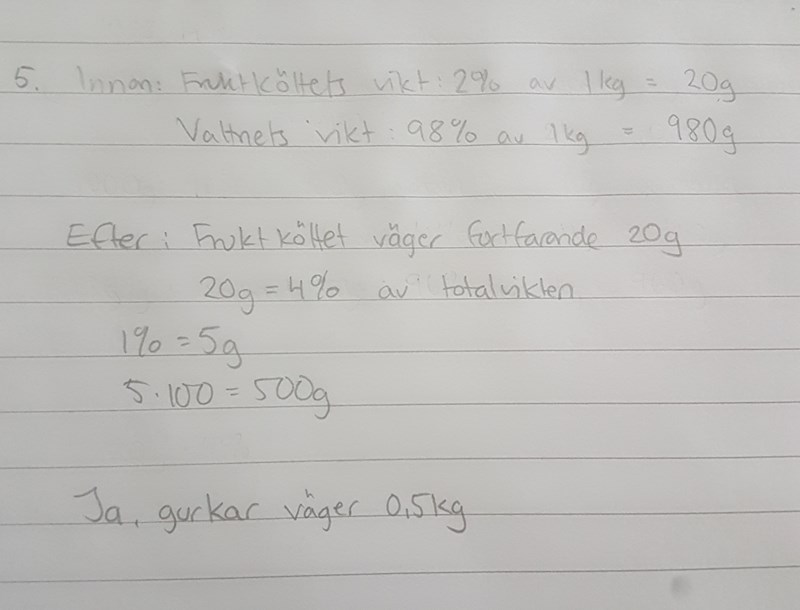 5. Innan: Fruktköttets vikt: 2% av 1kg = 20g
Vattnets vikt: 98% av 1kg = 980g
Efter: Fruktköttet väger fortfarande 20g
20g = 4% av totalvikten
1% = 5g
5·100 = 500g
Ja, gurkar väger 0,5kg